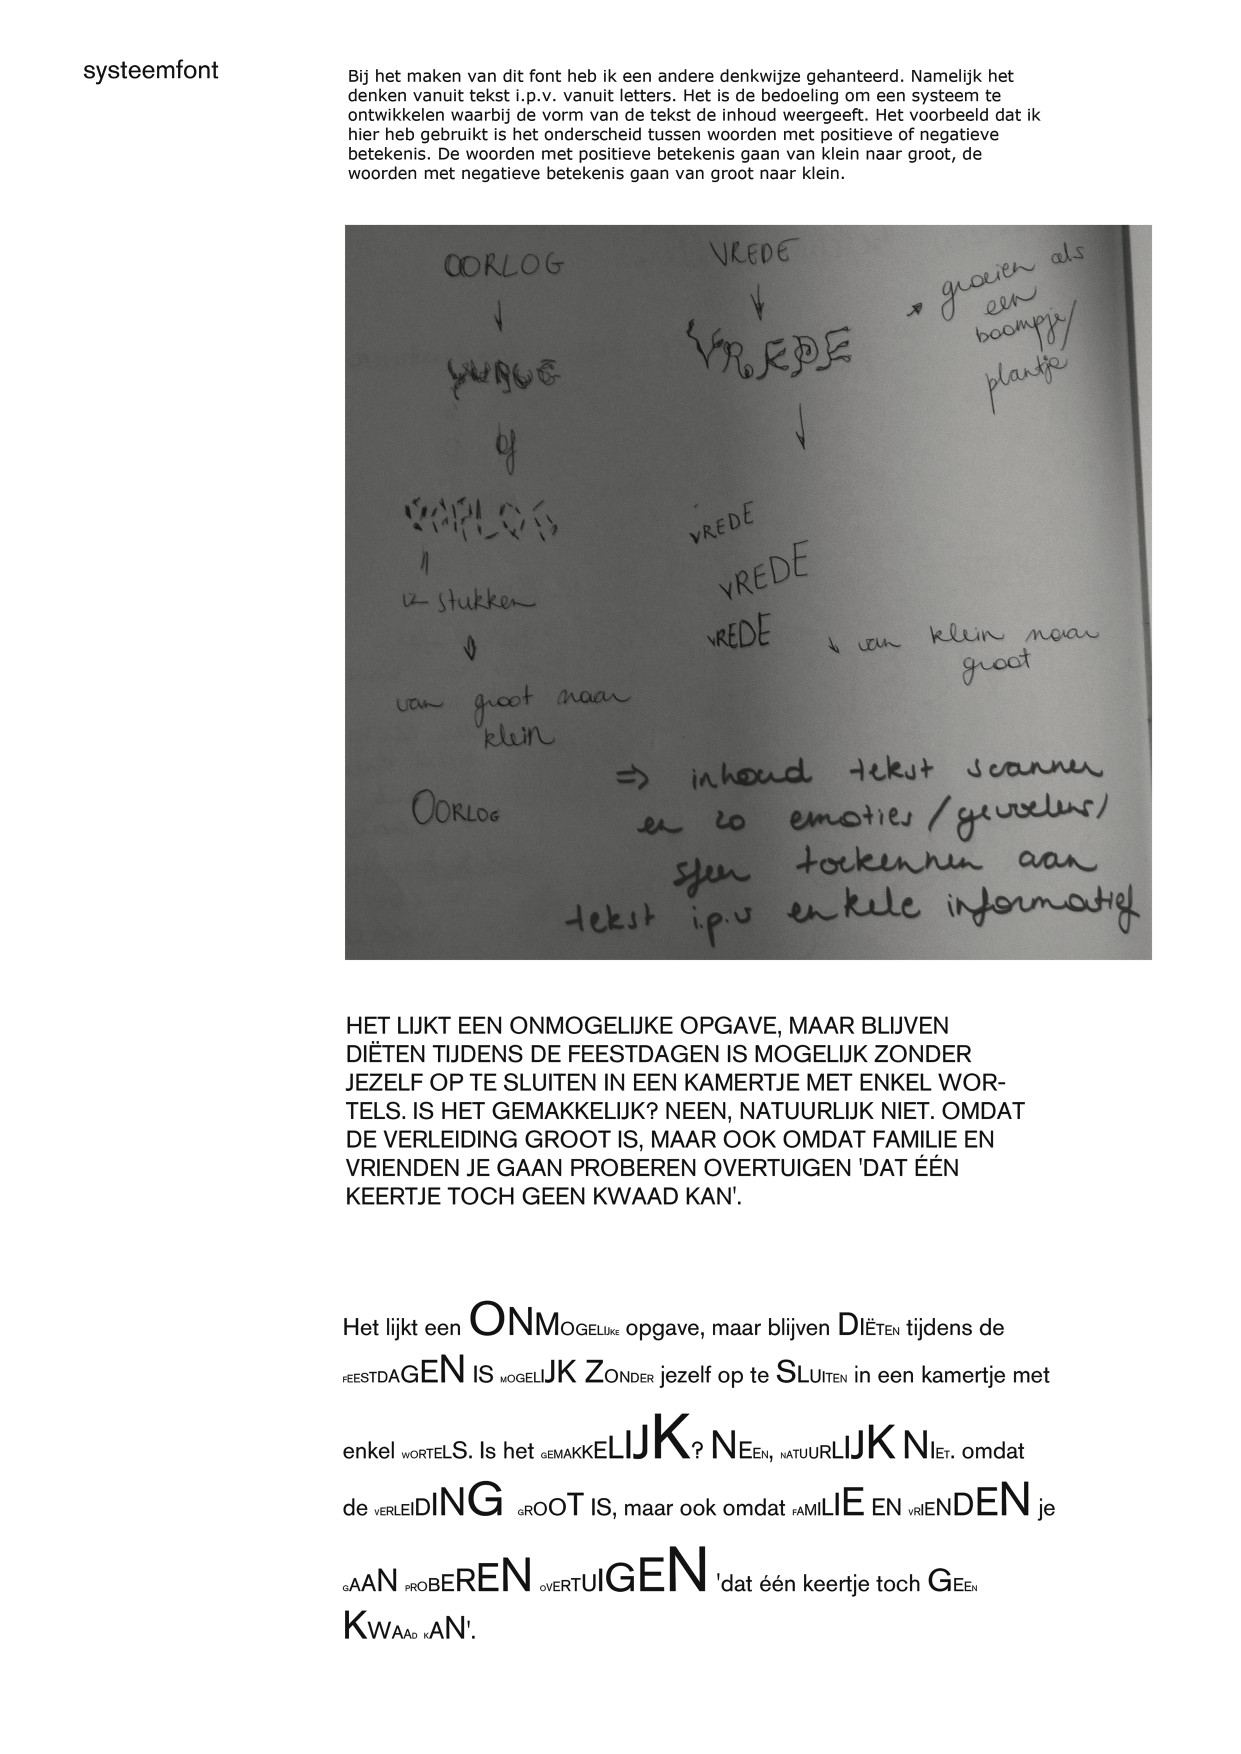 systeemfont
Bij het maken van dit font heb ik een andere denkwijze gehanteerd. Namelijk het
denken vanuit tekst i.p.v. vanuit letters. Het is de bedoeling om een systeem te
ontwikkelen waarbij de vorm van de tekst de inhoud weergeeft. Het voorbeeld dat ik
hier heb gebruikt is het onderscheid tussen woorden met positieve of negatieve
betekenis. De woorden met positieve betekenis gaan van klein naar groot, de
woorden met negatieve betekenis gaan van groot naar klein.
OORLOG
of
OORLOG
stukken
van groot naar
klein
OORLOG
VREDE
VREDE
groeien als
een
boompje/
plantje
VREDE
VREDE
VREDE
van klein naar
groot
⇒ inhoud tekst scannen
en zo emoties/gevoelens/
sfeer toekennen aan
tekst i.p.v enkele informatief
HET LIJKT EEN ONMOGELIJKE OPGAVE, MAAR BLIJVEN
DIËTEN TIJDENS DE FEESTDAGEN IS MOGELIJK ZONDER
JEZELF OP TE SLUITEN IN EEN KAMERTJE MET ENKEL WOR-
TELS. IS HET GEMAKKELIJK? NEEN, NATUURLIJK NIET. OMDAT
DE VERLEIDING GROOT IS, MAAR OOK OMDAT FAMILIE EN
VRIENDEN JE GAAN PROBEREN OVERTUIGEN 'DAT ÉÉN
KEERTJE TOCH GEEN KWAAD KAN'.
Het lijkt een ONMOGELIJKE opgave, maar blijven DIËTEN tijdens de
FEESTDAGEN IS MOGELIJK ZONDER jezelf op te SLUITEN in een kamertje met
enkel WORTELS. Is het GEMAKKELIJK? NEEN, NATUURLIJK NIET. omdat
de VERLEIDING GROOT IS, maar ook omdat FAMILIE EN VRIENDEN je
GAAN PROBEREN OVERTUIGEN 'dat één keertje toch GEEN
KWAAD KAN'.